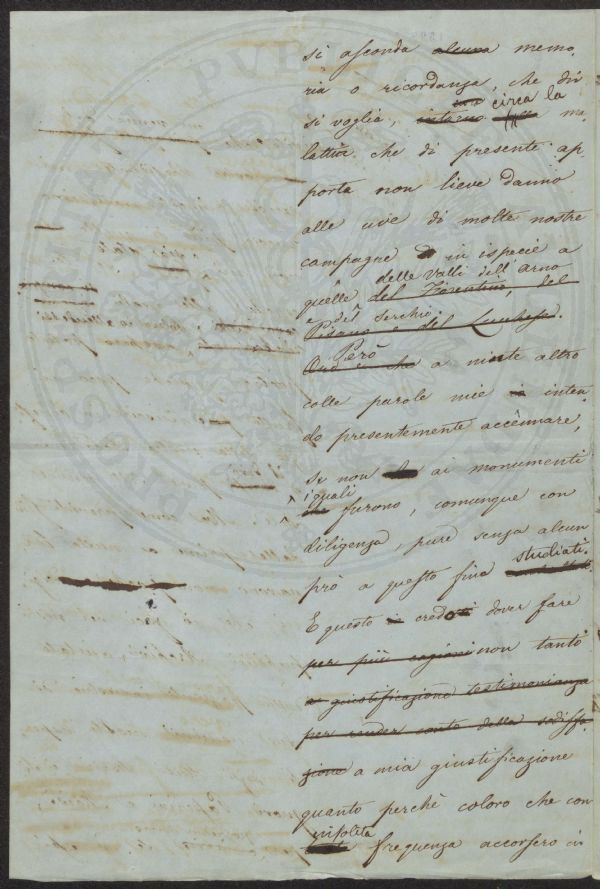 si asconda alcuna memo,
ria o ricordanza, che dir
si voglia, intorno circa la ma,
lattia che di presente ap,
porta non lieve danno
alle uve di molte nostre
campagne in ispecie a
quelle del Fiorentino, del delle Valli dell'Arno
Pisano e del Lucchese. e del Serchio
Però a niente altro
colle parole mie in inten
do presentemente accennare,
se non ai monumenti
i quali
che furono, comunque con
diligenza, pure senza alcun
prò a questo fine studiati.
E questo credo dover fare
per più cagioni non tanto
a giustificazione testimonianza
per render conto della sodisfa,
zione a mia giustificazione
quanto perchè coloro che con
insolita
frequenza accorsero in
PROSPERITATI PUBLICAE